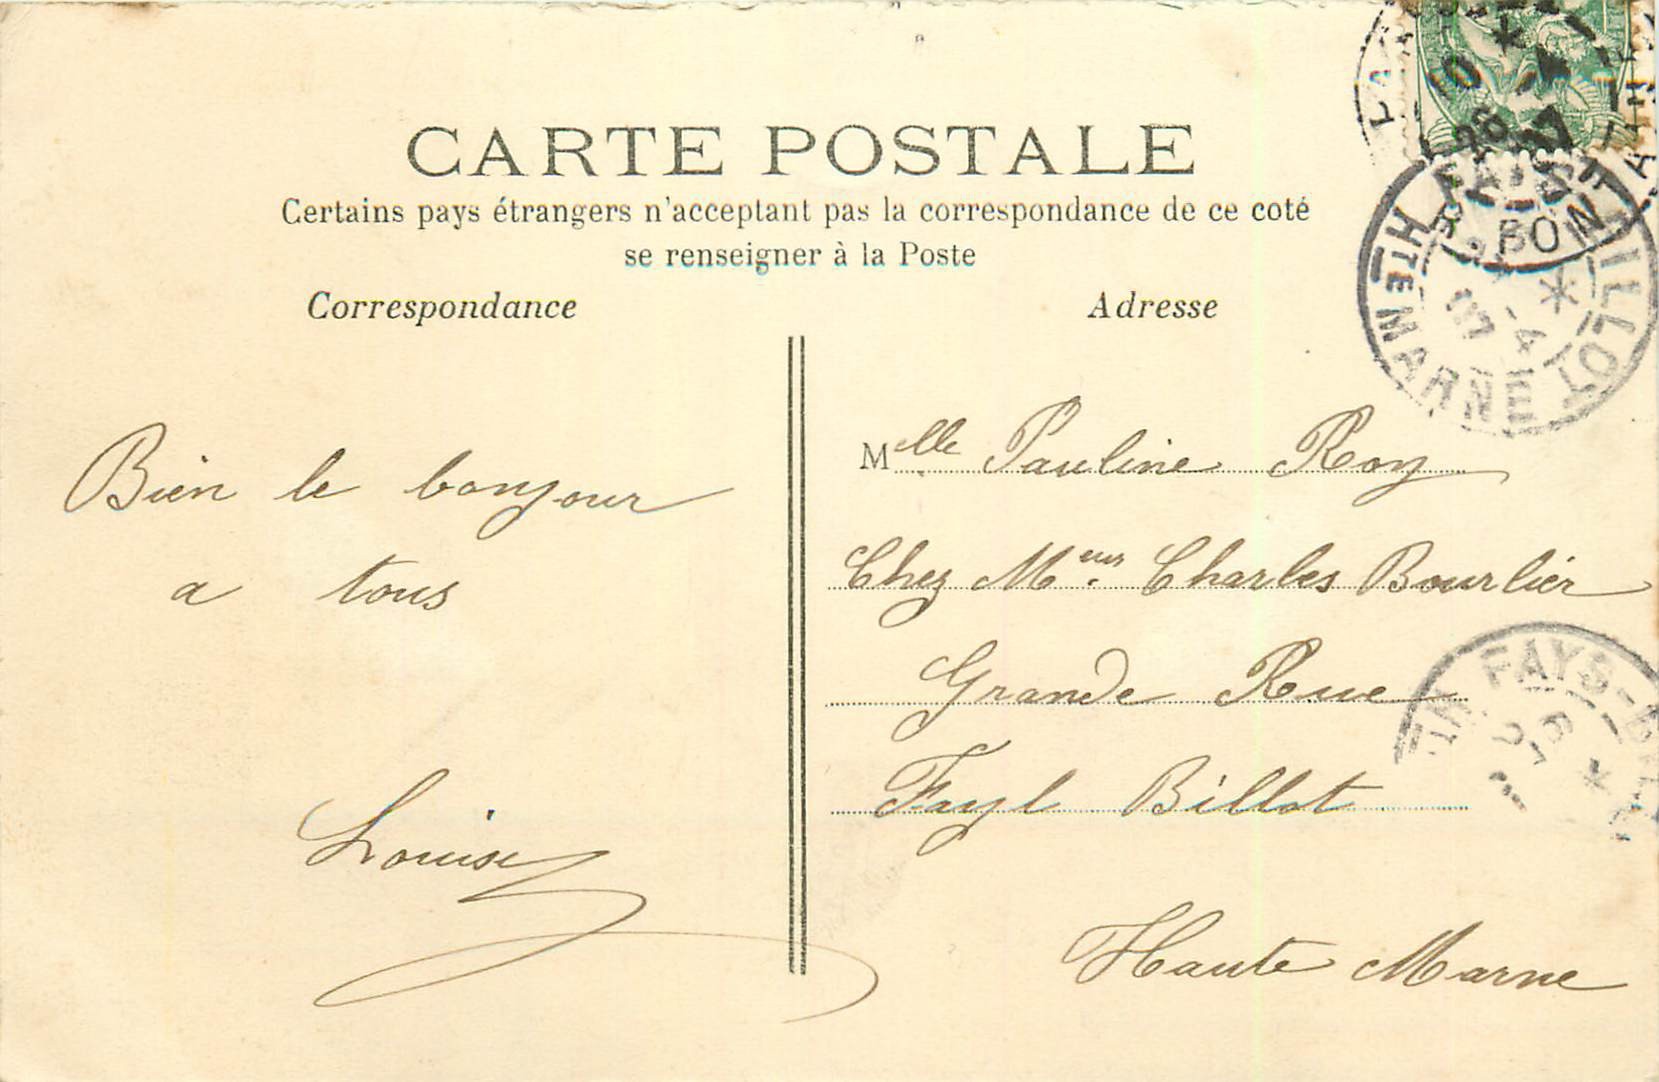 CARTE POSTALE
Certains pays étrangers n'acceptant pas la correspondance de ce coté
se renseigner à la Poste
Correspondance
Bien le bonjour
a tous
Louise
Adresse
Melle Pauline Roy
Chez Meur. Charles Bourlier
Grande Rue
Fayl Billot
Haute Marne
FAYS-BILLOT
HTE MARNE
FAYS-B